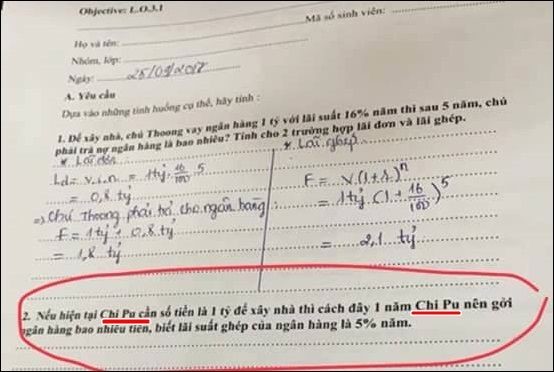 Objective: L.O.3.1
Mã số sinh viên:
Họ và tên:
Nhóm, lớp:
Ngày: 25/09/2017
A. Yêu cầu
Dựa vào những tình huống cụ thể, hãy tính :
1. Để xây nhà, chú Thoong vay ngân hàng 1 tỷ với lãi suất 16% năm thì sau 5 năm, chú
phải trả nợ ngân hàng là bao nhiêu? Tính cho 2 trường hợp lãi đơn và lãi ghép.
* Lãi đơn
Ld = v.i.n = 1 tỷ. 16/100 .5
= 0,8 tỷ
=> Chú Thoong phải trả cho ngân hàng:
F = 1 tỷ + 0,8 tỷ
= 1,8 tỷ
* Lãi ghép
F = V(1+i)^n
= 1 tỷ (1 + 16/100)^5
= 2,1 tỷ
2. Nếu hiện tại Chi Pu cần số tiền là 1 tỷ để xây nhà thì cách đây 1 năm Chi Pu nên gởi
ngân hàng bao nhiêu tiền, biết lãi suất ghép của ngân hàng là 5% năm.